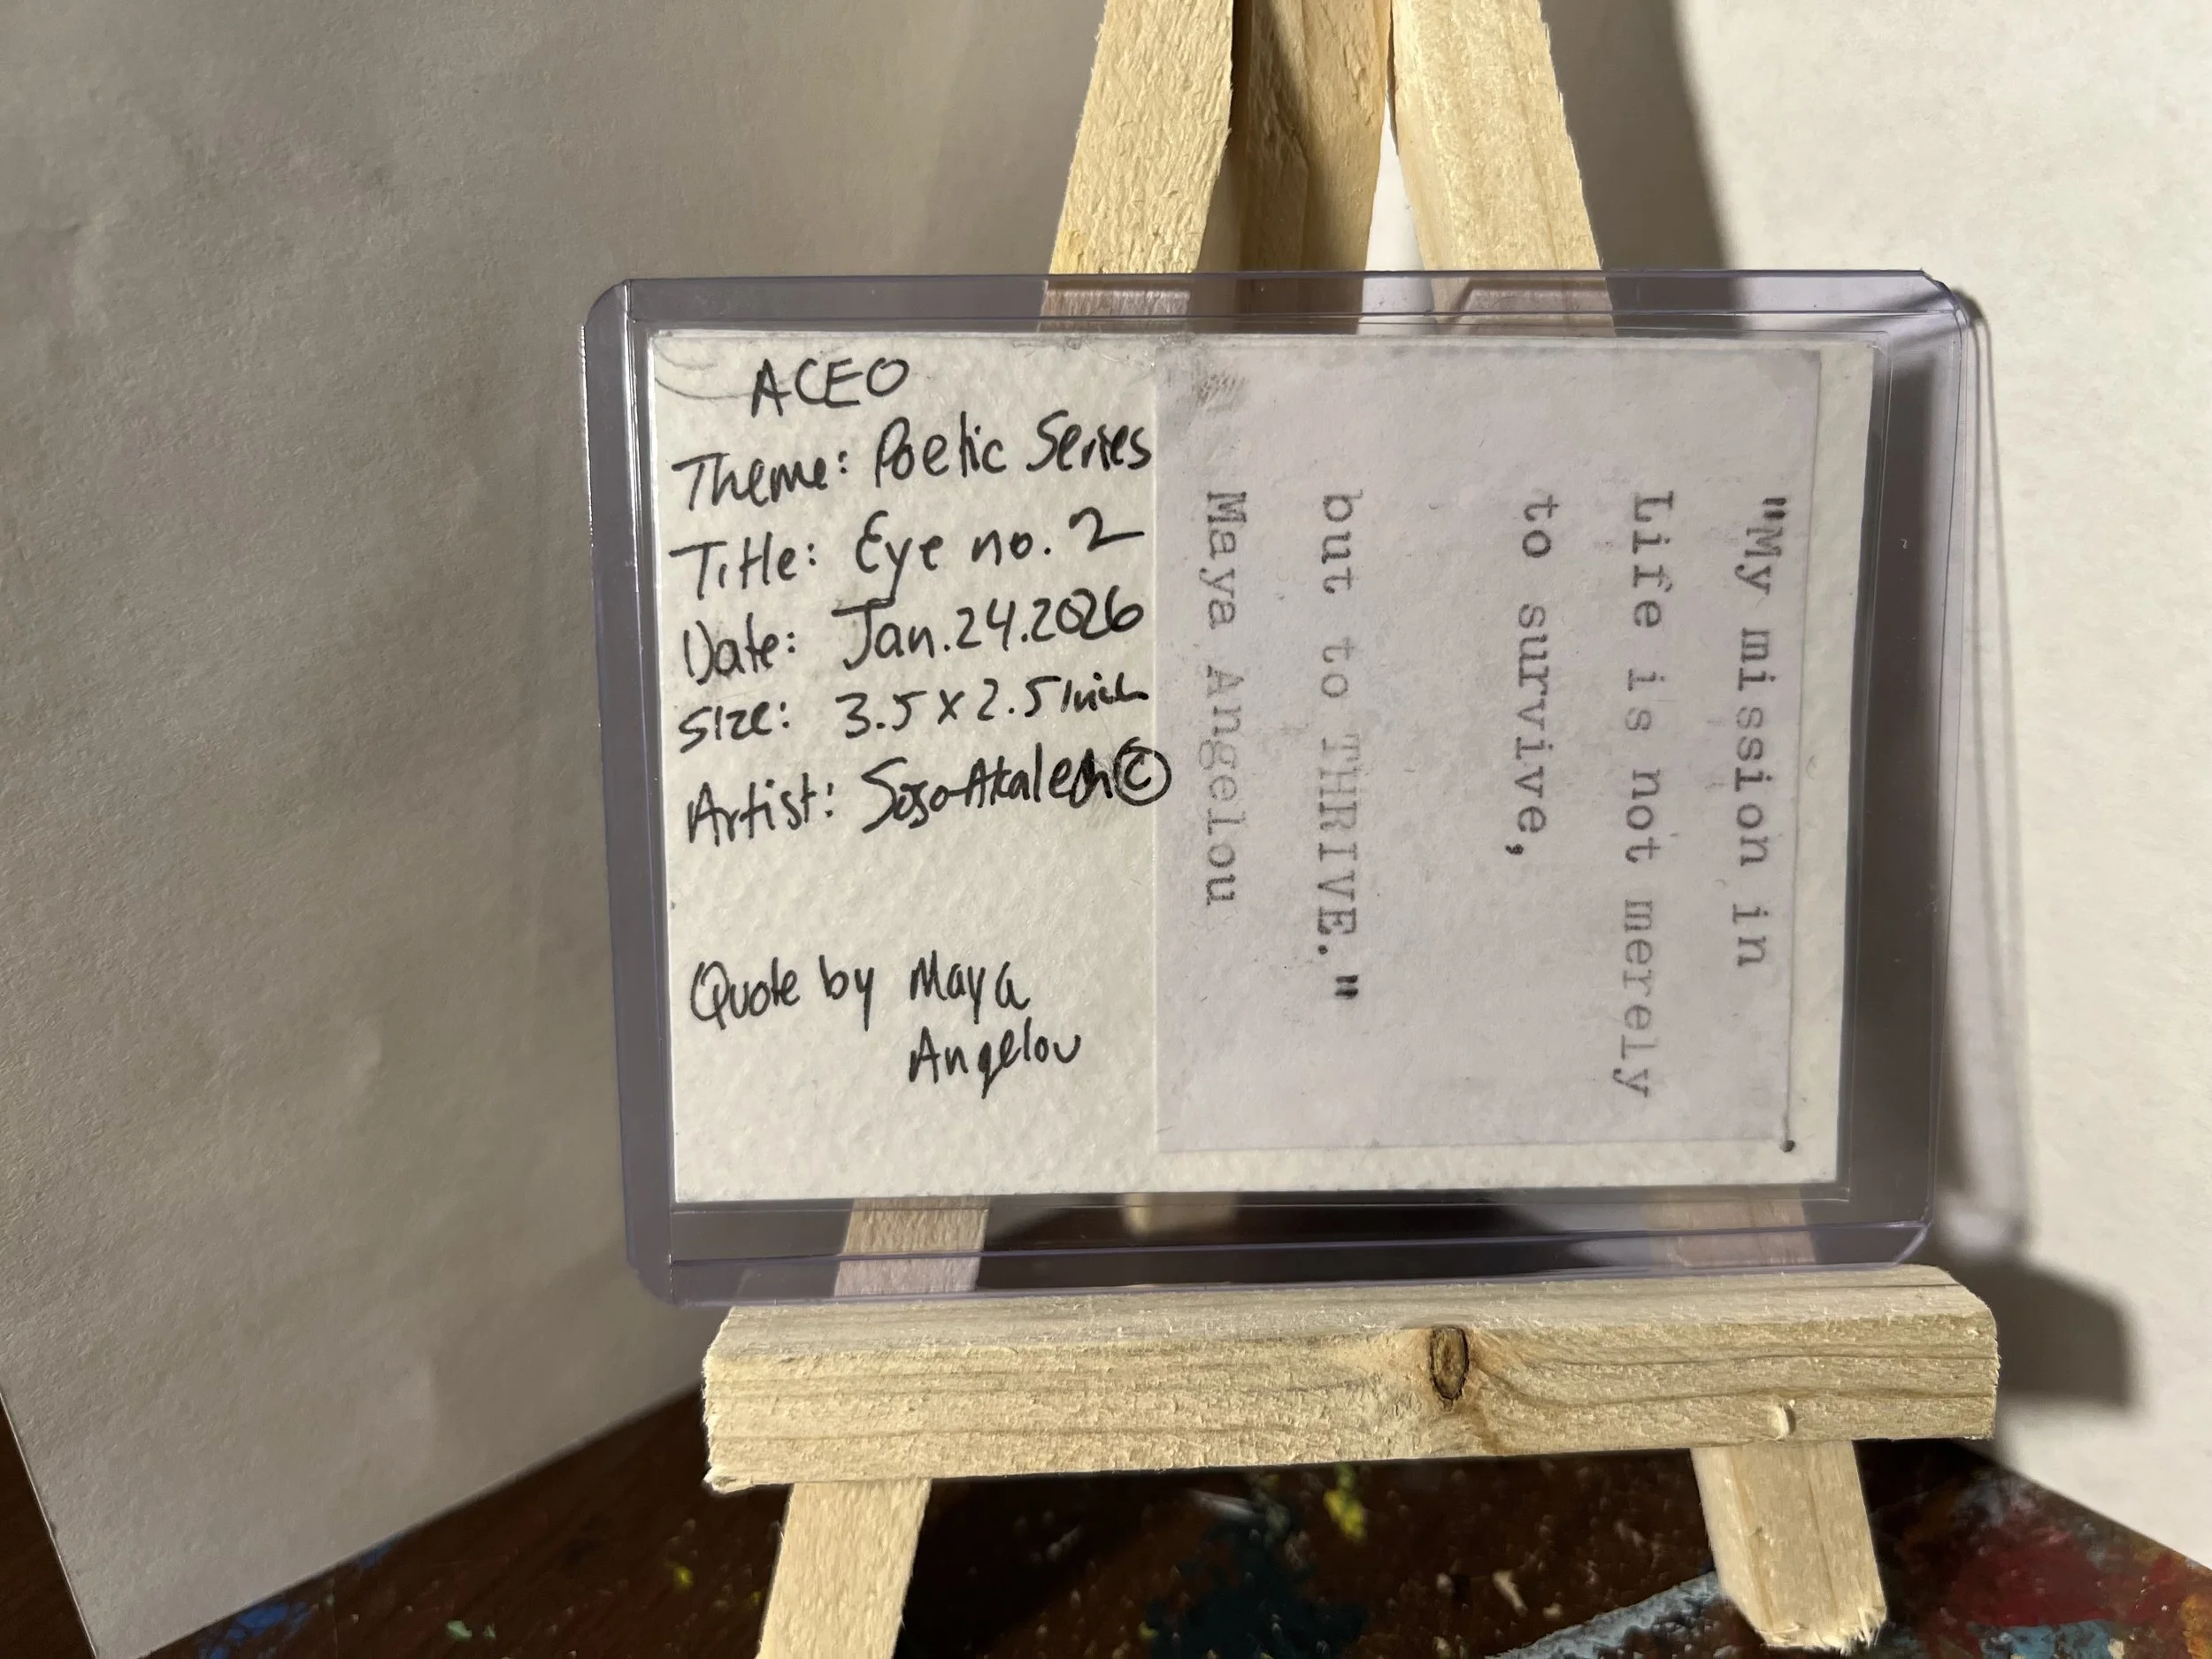 ACEO
Theme: Poetic Series
Title: Eye no. 2
Date: Jan.24.2026
Size: 3.5 x 2.5 inch
Artist: ©
Quote by Maya
Angelou
"My mission in
Life is not merely
to survive,
but to THRIVE."
Maya Angelou